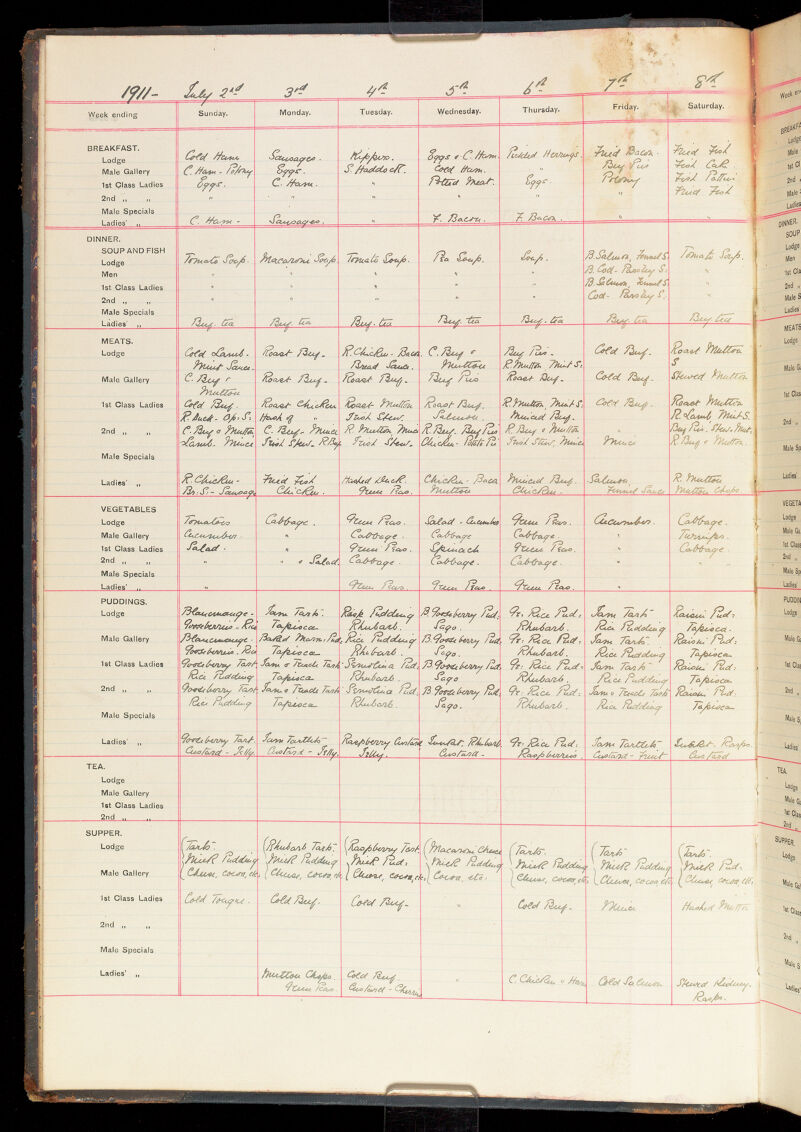 1911- July 2nd 3rd 4th 5th 6th 7th 8th
Week ending Sunday. Monday. Tuesday. Wednesday. Thursday. Friday. Saturday.
BREAKFAST.
Lodge Cold Ham Sausages. Kippers. Eggs & C. Ham. Pickled Herrings. Fried Bacon. Fried Fish
Male Gallery C. Ham - Polony Eggs. S. Haddock. Cold Ham. " Beef Pies Fish Cake
1st Class Ladies Eggs. C. Ham. " Potted Meat. Eggs. Polony Fish
2nd " " " " " " " " Fried Fish
Male Specials
Ladies' " C. Ham - Sausages. " F. Bacon. F. Bacon. " "
DINNER.
SOUP AND FISH
Lodge Tomato Soup. Macaroni Soup. Tomato Soup. Pea Soup. Soup. B. Salmon, Fennel S. Tomato Soup.
Men " " " " " B. Cod - Parsley S. "
1st Class Ladies " " " " " B. Salmon, Fennel S. "
2nd " " " " " " " Cod - Parsley S. "
Male Specials
Ladies' " Beef-tea Beef tea Beef-tea Beef tea Beef-tea Beef tea Beef tea
MEATS.
Lodge Cold Lamb - Roast Beef - R. Chicken - Bacon C. Beef & Beef Pies - Cold Beef. Roast Mutton
Mint Sauce. Bread Sauce. Mutton R. Mutton Mint S.
Male Gallery C. Beef & Roast Beef - Roast Beef - Beef Pies Roast Beef - Cold Beef. Stewed Mutton
Mutton
1st Class Ladies Cold Beef. Roast Chicken Roast Mutton Roast Beef. R. Mutton Mint S. Cold Beef. Roast Mutton
R. Duck - Ap. S. Hash of " Irish Stew. Salmon. Minced Beef. R. Lamb Mint S.
2nd " " C. Beef & Mutton C. Beef - Mince R. Mutton Mince R. Beef. Beef Pies R. Beef & Mutton " Beef Pies. Stew. Mut.
Lamb. Mince Irish Stew - R. Beef Irish Stew. Chicken - Potato Pie Irish Stew, Mince Mince R. Beef & Mutton.
Male Specials
Ladies' " R. Chicken - Fried Fish Hashed Duck. Chicken - Bacon Minced Beef. Salmon. R. Mutton
Br. S. - Sausage Chicken. Green Peas. Mutton Chicken. Fennel Sauce Mutton Chops
VEGETABLES
Lodge Tomatoes Cabbage. Green Peas. Salad - Cucumber Green Peas. Cucumber. Cabbage.
Male Gallery Cucumber. " Cabbage. Cabbage Cabbage. " Turnips.
1st Class Ladies Salad. " Green Peas. Spinach Green Peas. " Cabbage.
2nd " " " " & Salad. Cabbage. Cabbage. Cabbage. " "
Male Specials
Ladies' " " Green Peas. Green Peas. Green Peas. "
PUDDINGS.
Lodge Blancmange - Jam Tart. Rasp Pudding B. Gooseberry Pud. Gr. Rice Pud. Jam Tart Raisin Pud:
Gooseberries - Rice Tapioca Rhubarb. Sago. Rhubarb. Rice Pudding Tapioca.
Male Gallery Blancmange - Baked Marm. Pud. Rice Pudding B. Gooseberry Pud. Gr. Rice Pud. Jam Tart. Raisin Pud:
Gooseberries. Rice Tapioca Rhubarb. Sago. Rhubarb. Rice Pudding Tapioca
1st Class Ladies Gooseberry Tart Jam & Treacle Tart Semolina Pud. B. Gooseberry Pud. Gr. Rice Pud. Jam Tart Raisin Pud.
Rice Pudding Tapioca Rhubarb. Sago Rhubarb. Rice Pudding Tapioca
2nd " " Gooseberry Tart Jam & Treacle Tart Semolina Pud. B. Gooseberry Pud. Gr. Rice Pud: Jam & Treacle Tart Raisin Pud.
Rice Pudding Tapioca Rhubarb. Sago. Rhubarb. Rice Pudding Tapioca
Male Specials
Ladies' " Gooseberry Tart. Jam Tartlets Raspberry Custard Junket. Rhubarb. Gr. Rice Pud: Jam Tartlets Junket. Rasps.
Custard - Jelly. Custard - Jelly. Jelly. Custard - Raspberries. Custard - Fruit Custard
TEA.
Lodge
Male Gallery
1st Class Ladies
2nd " "
SUPPER.
Lodge Tarts. Rhubarb Tart. Raspberry Tart. Macaroni Cheese Tarts. Tarts Tarts.
Milk Pudding Milk Pudding Milk Pud: Milk Pudding Milk Pudding Milk Pudding Milk Pud:
Male Gallery Cheese, cocoa, etc. Cheese, cocoa, etc Cheese, cocoa, etc. Cocoa, etc. Cheese, cocoa, etc. Cheese, cocoa etc. Cheese, cocoa, etc.
1st Class Ladies Cold Tongue. Cold Beef. Cold Beef - " Cold Beef - Mince Hashed Mutton
2nd " "
Male Specials
Ladies' " Mutton Chops Cold Beef " C. Chicken & Ham Cold Salmon Stewed Kidney.
Green Peas. Custard - Cherries Rasps.